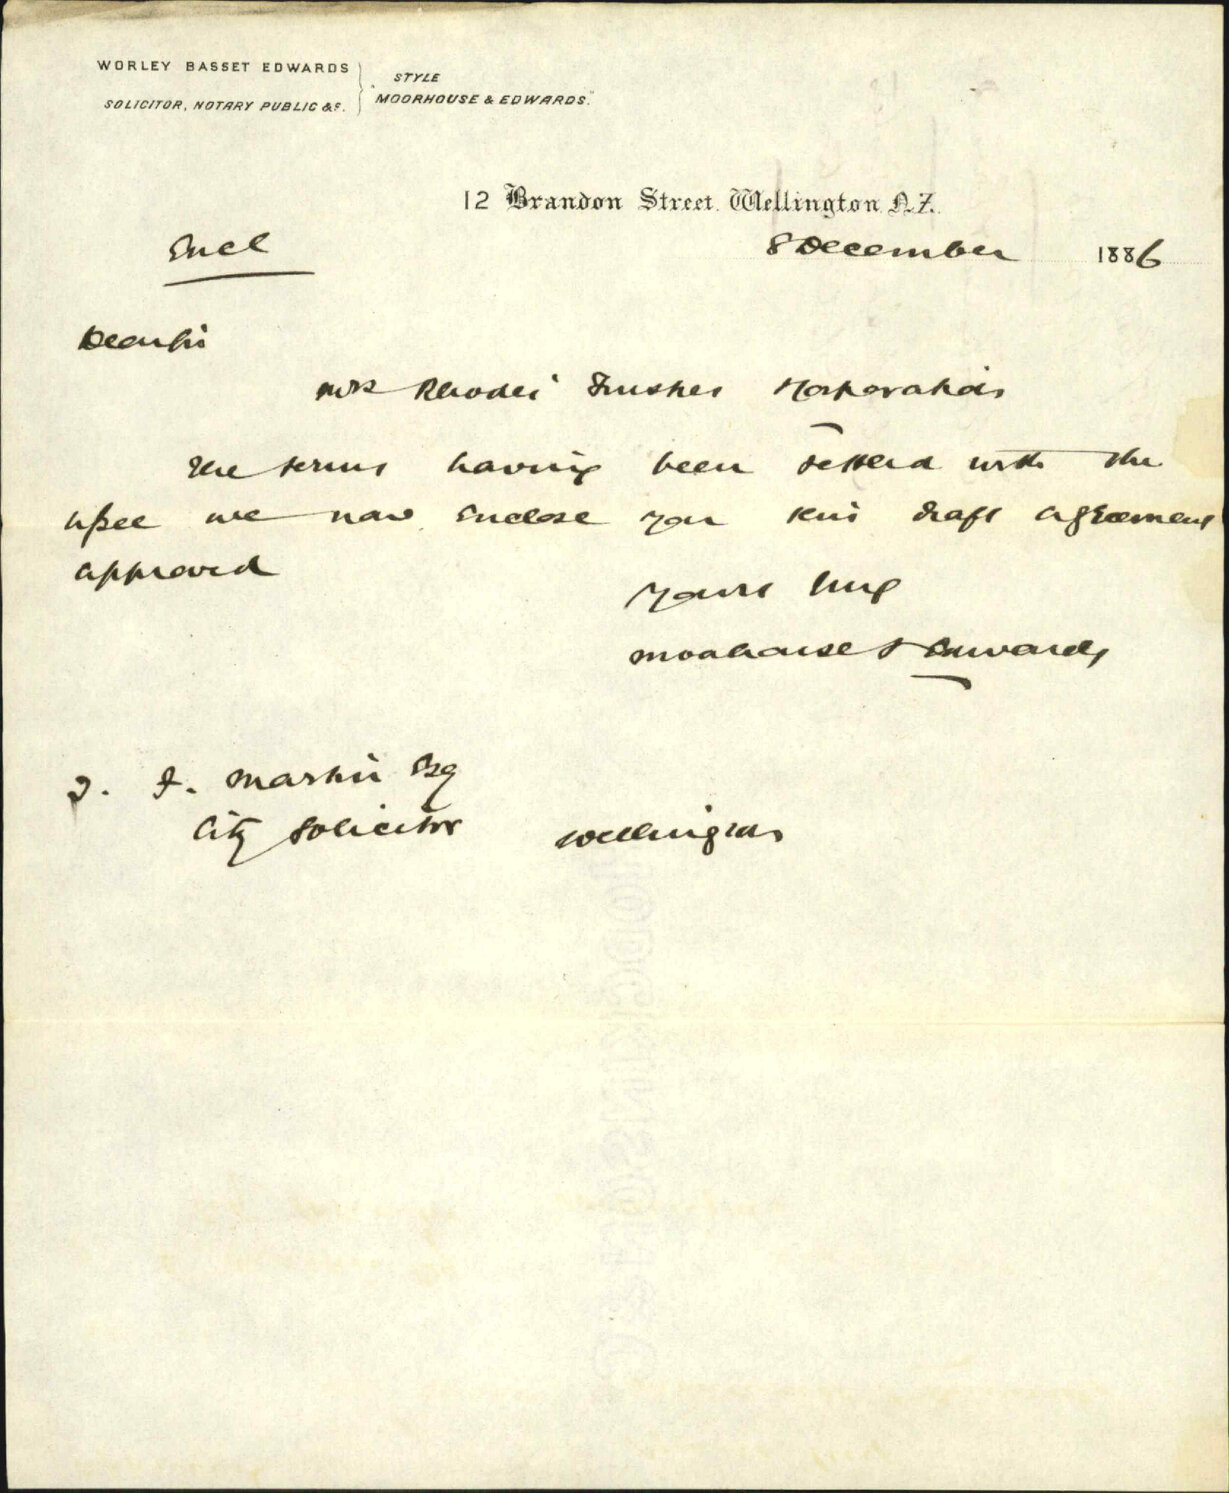 WORLEY BASSET EDWARDS
SOLICITOR, NOTARY PUBLIC &c.
STYLE
"MOORHOUSE & EDWARDS."
12 Brandon Street Wellington N.Z.
Encl
8 December 1886
Dear Sir
Mrs Rhodes' Trustees & Corporation
The terms having been settled with the
we now enclose you this draft agreement
approved
Yours truly
Moorhouse & Edwards
J. F. Martin Esq
City Solicitor Wellington